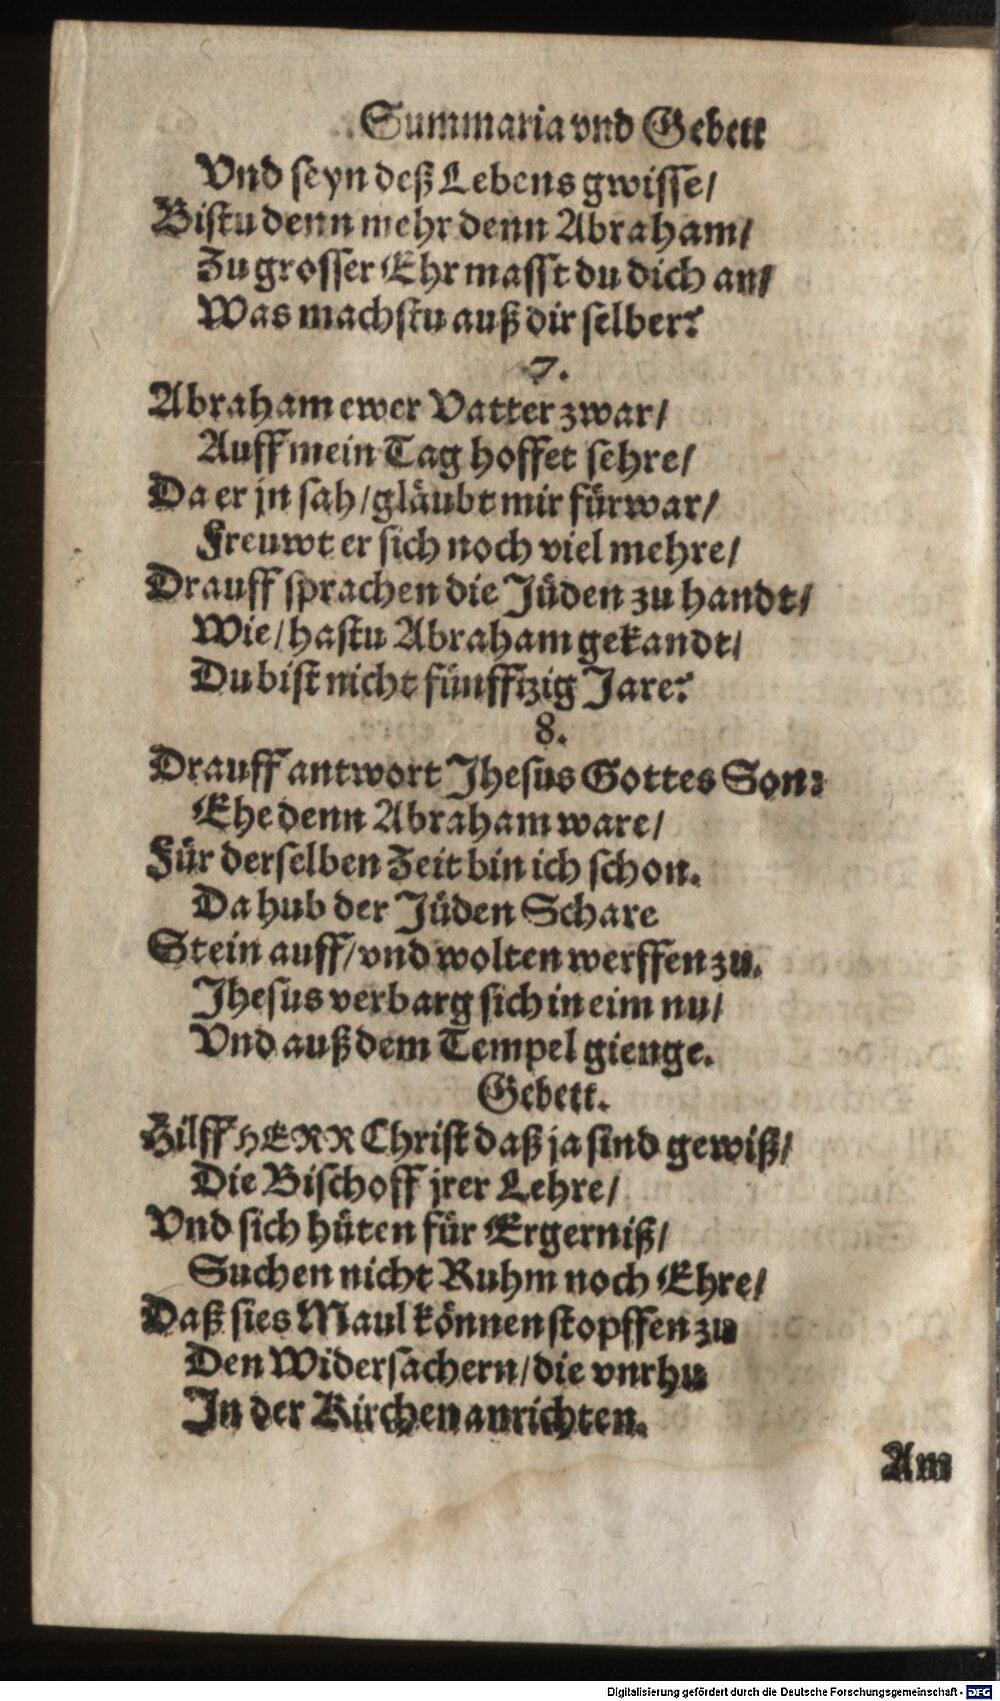 Summaria vnd Gebett
Vnd seyn deß Lebens gwisse/
Bistu denn mehr denn Abraham/
Zu grosser Ehr masst du dich an/
Was machstu auß dir selber?
7.
Abraham ewer Vatter zwar/
Auff mein Tag hoffet sehre/
Da er jn sah/gläubt mir fürwar/
Freuwt er sich noch viel mehre/
Drauff sprachen die Jüden zu handt/
Wie/hastu Abraham gekandt/
Du bist nicht fünfftzig Jare?
8.
Drauff antwort Jhesus Gottes Son:
Ehe denn Abraham ware/
Für derselben Zeit bin ich schon.
Da hub der Jüden Schare
Stein auff/vnd wolten werffen zu.
Jhesus verbarg sich in eim nu/
Vnd auß dem Tempel gienge.
Gebett.
Hilff HERR Christ daß ja sind gewiß/
Die Bischoff jrer Lehre/
Vnd sich hüten für Ergerniß/
Suchen nicht Ruhm noch Ehre/
Daß sies Maul können stopffen zu
Den Widersachern/die vnrhu
In der Kirchen anrichten.
Am
Digitalisierung gefördert durch die Deutsche Forschungsgemeinschaft - DFG